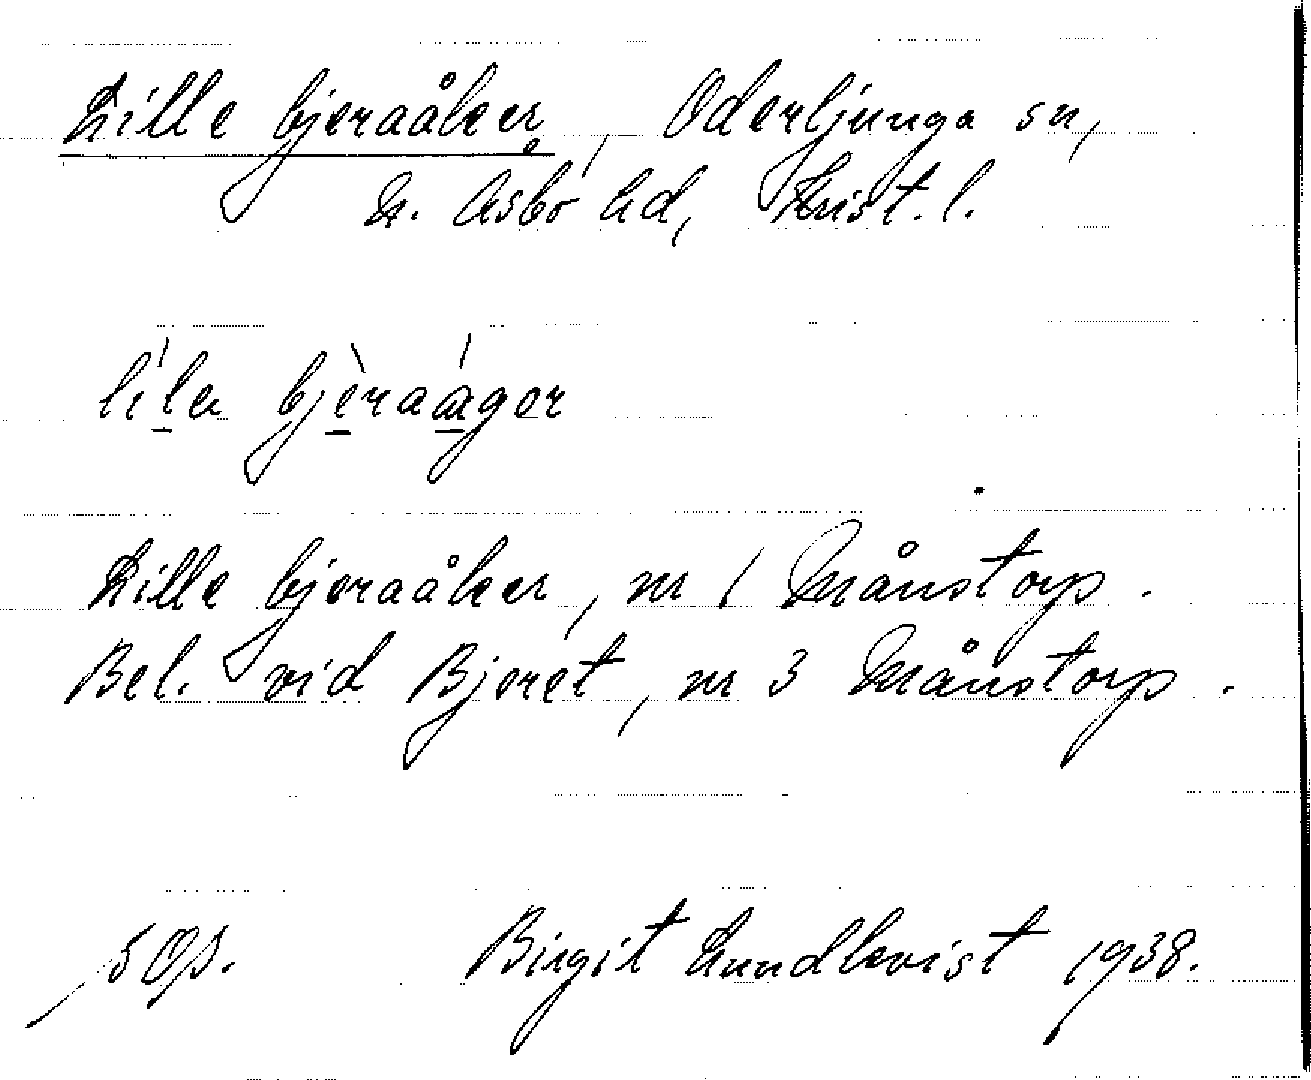 Lille bjeraåker, Oderljunga sn,
N. Åsbo hd, Krist. l.
lila bjèraágor
Lille bjeraåker, nr 1 Månstorp.
Bel. vid Bjeret, nr 3 Månstorp.
Birgit Lundkvist 1938.